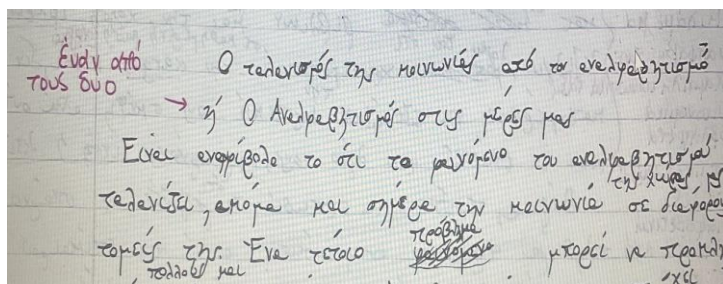 έναν από
τους δυο
Ο ταλανισμός της κοινωνίας από το αναλφαβητισμό
→ ή Ο Αναλφαβητισμός στις μέρες μας
Είναι αναμφίβολο το ότι το φαινόμενο του αναλφαβητισμού
της χώρας
ταλανίζει, ακόμα και σήμερα την κοινωνία σε διαφόρου
πρόβλημα
τομείς της. Ένα τέτοιο φαινόμενο μπορεί να προκλη
πολλούς και
έχει